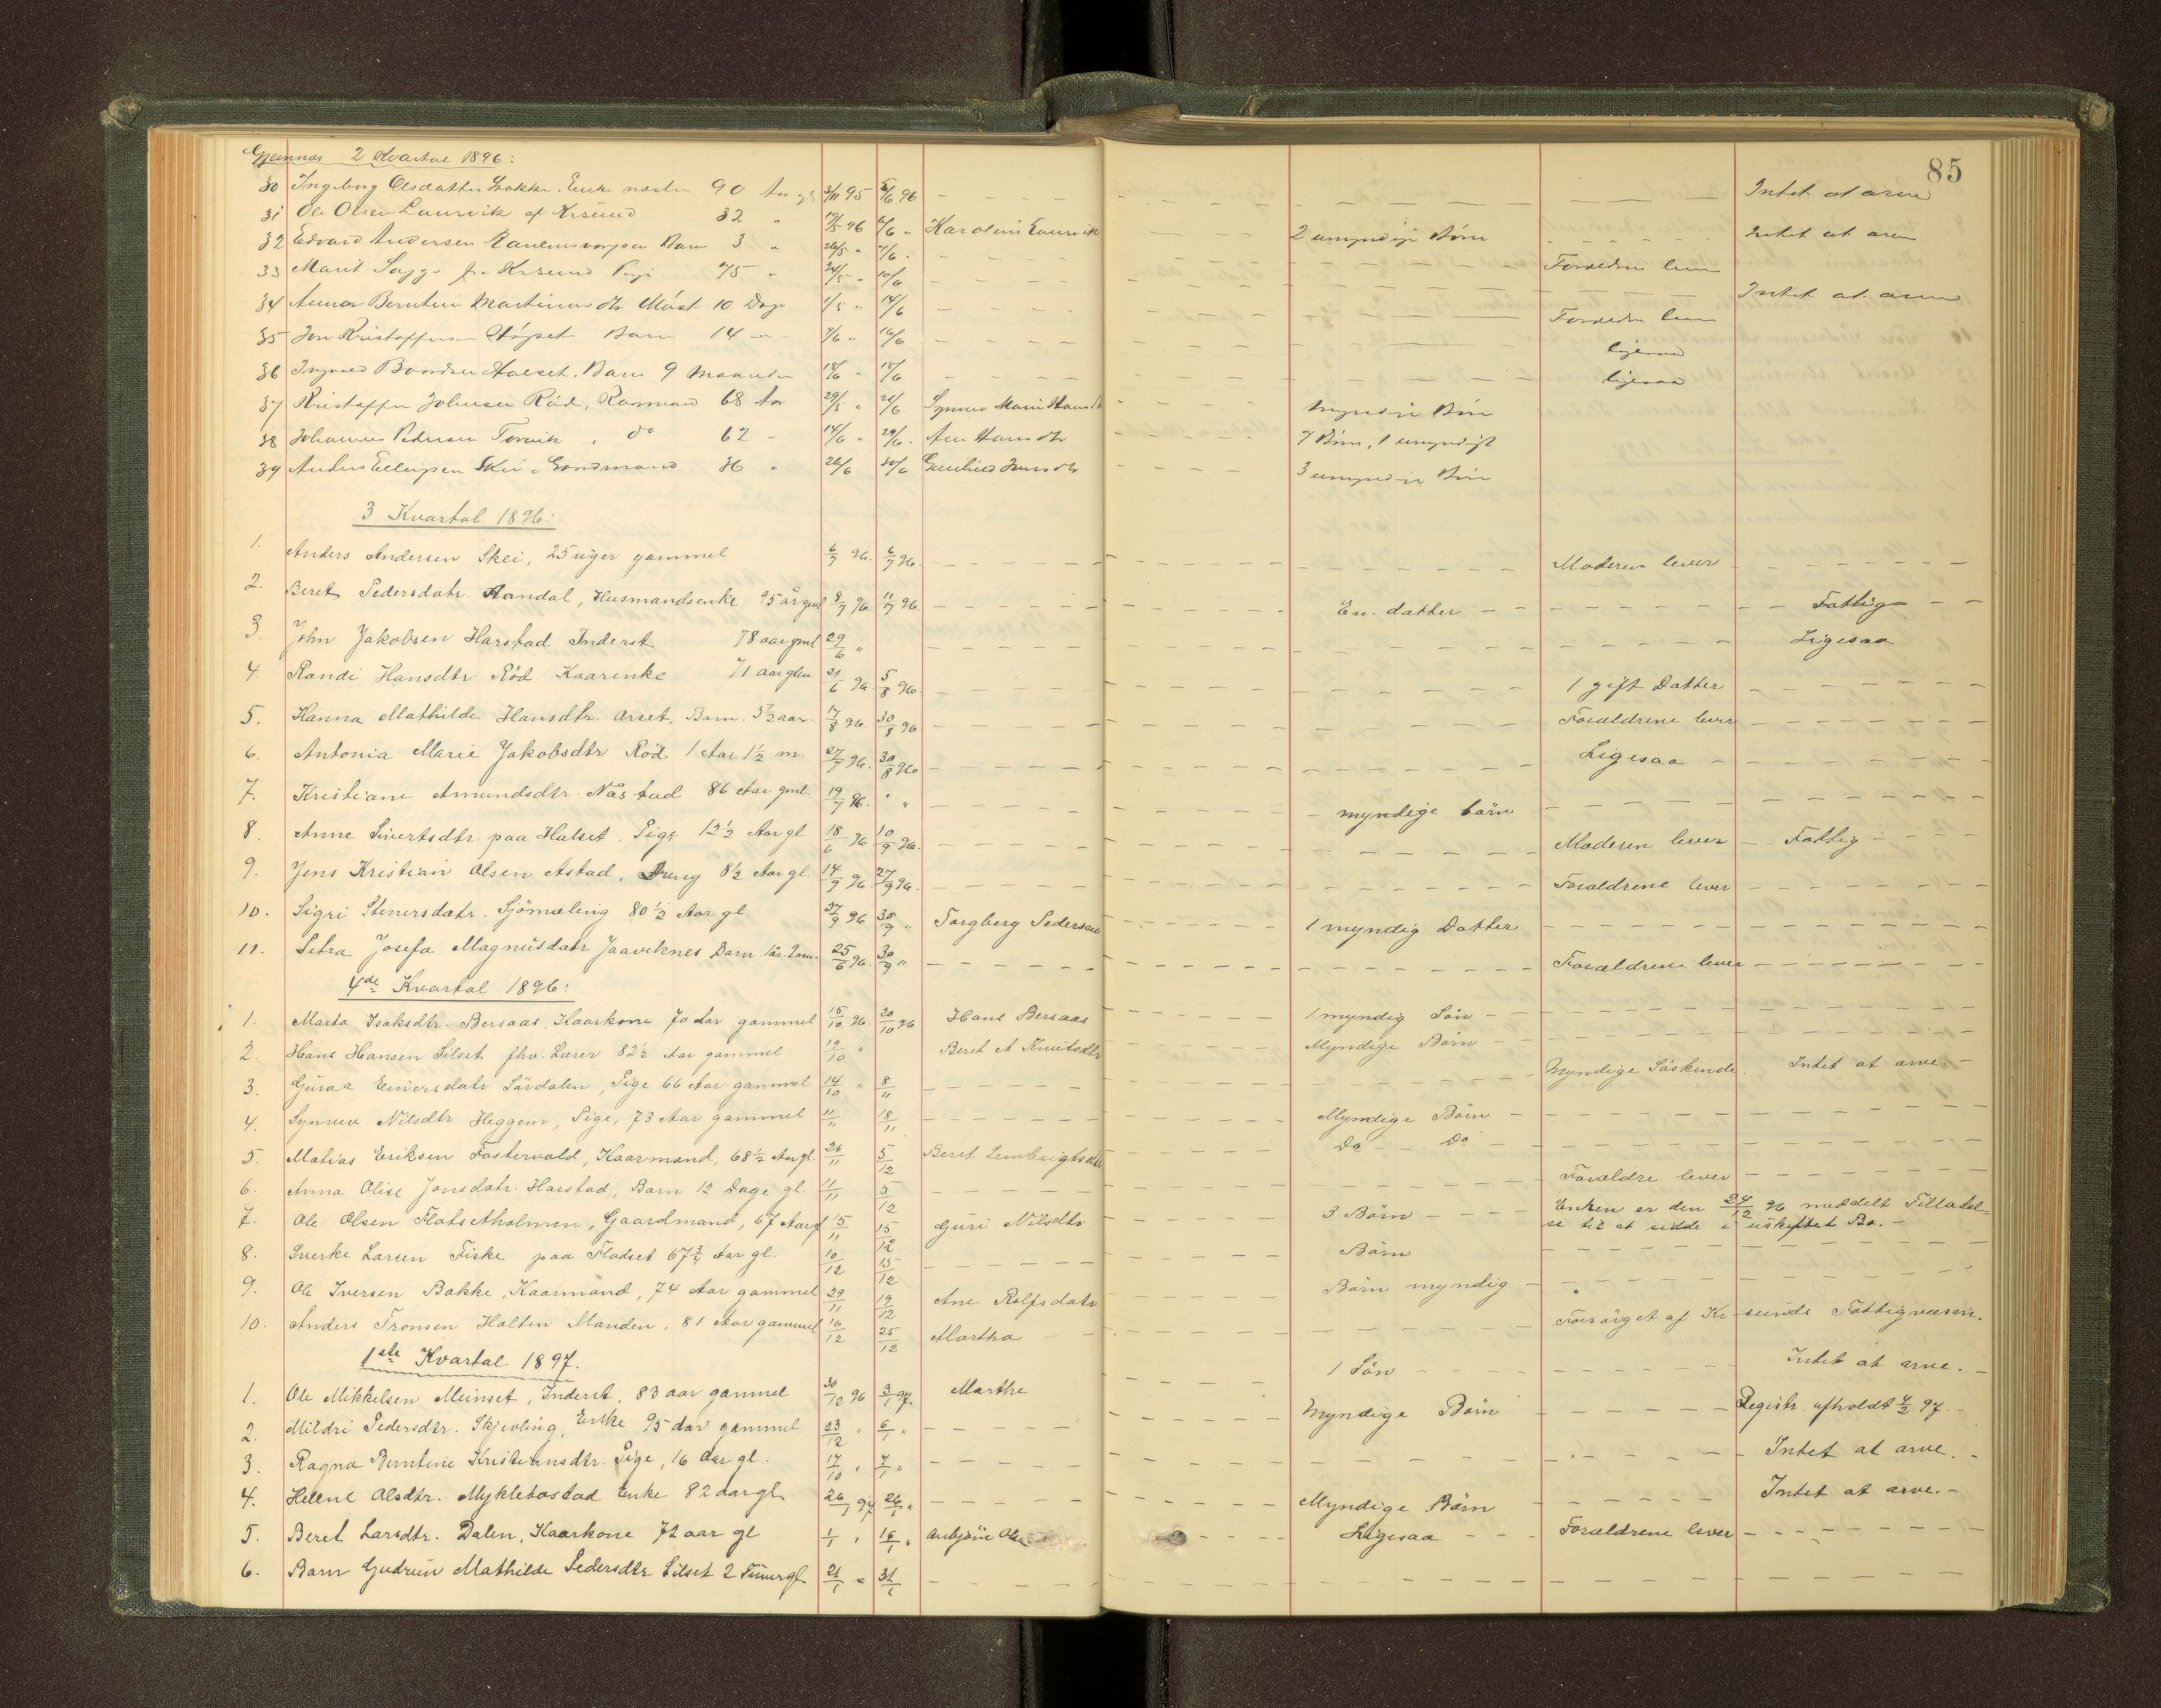 85
2 Kvartal 1896:
30 Ingeborg Olsdatter Bakke. Enke næsten 90 Aar 3/11 95 5/6 96 Intet at arve
31 Ole Olsen Laurvik af Krsund 32 " 19/5 96 6/6 " Karoline Laurvik 2 umyndige Börn Intet at arve
32 Edvard Andersen Barn 3 " 26/5 " 7/6 " Forældre lever
33 Marit fra Krsund Pige 75 " 24/5 " 10/6 Intet at arve
34 Anna Berntine Martinusdtr 10 Dage 1/5 " 14/6 Forældre lever
35 Jon Kristoffersen Barn 14 " 9/6 " 16/6 ligesaa
36 Ingvald Aarset. Barn 9 Maaneder 18/6 ligesaa
37 Kristoffer Johnsen Röd, Kaarmand 68 Aar 29/5 " 21/6 Synnøve Marie Hansdtr Myndige Börn
38 Johannes Pedersen Torvik, do 62 " 14/6 " 29/6 " Ane Hansdtr 7 Börn, 1 umyndigt
39 Anders Ellingsen Skei, Gaardmand 36 " 26/6 30/6 3 umyndige Börn
3 Kvartal 1896:
1. Anders Andersen Skei, 25 uger gammel 6/7 96. 6/7 96. Moderen lever
2. Beret Pedersdatr. Aandal, Husmandsenke 95 år gml 8/7 96. 11/7 96. En datter Fattig
3. John Jakobsen Harstad Inderst 78 aar gml 29/6 " Ligesaa
4. Randi Hansdtr Röd Kaarenke 71 aar glm 21/6 96. 5/8 96. 1 gift Datter
5. Hanna Mathilde Hansdtr. Arset, Barn. 5½ aar. 17/8 96. 30/8 96 Forældrene lever
6. Antonia Marie Jakobsdtr Röd 1 Aar 1½ m. 27/7 96. 30/8 96 Ligesaa
7. Kristiane Amundsdtr. Nåstad 86 Aar gml. 19/7 96. " " myndige börn
8. Anne Sivertsdtr. paa Halset, Pige 12½ Aar gl. 18/6 96 10/9 96. Moderen lever Fattig
9. Jens Kristian Olsen Astad, Dreng 8½ Aar gl. 14/9 96 27/9 96. Forældrene lever
10. Sigri Stenersdatr. Sjömæling 80½ Aar gl. 27/9 96 30/9 " Torgberg Pedersen 1 myndig Datter
11. Petra Josefa Magnusdatr Jaaviknes Barn 1 år 2 mn. 25/6 96. 30/9 " Forældrene lever
4de Kvartal 1896:
1. Marta Isaksdtr. Bersaas, Kaarkone 70 Aar gammel 15/10 96. 20/10 96 Hans Bersaas 1 myndig Sön
2. Hans Hansen Silset fhv. Lærer 82½ Aar gammel 19/10 " Beret Knutsdtr Myndige Börn
3. Guraa Einersdatr Sördalen, Pige 66 Aar gammel 14/10 " 8/11 Myndige Söskende. Intet at arve.
4. Synnøve Nilsdtr Heggem, Pige, 73 Aar gammel 11/11 18/11 Myndige Börn
5. Matias Eriksen Fostervold, Kaarmand, 68½ Aar gl. 26/11 5/12 Beret Lembrigtsdtr Do Do
6. Anna Olise Jonsdatr. Harstad, Barn 12 Dage gl. 11/11 5/12 Forældre lever
7. Ole Olsen Flatsetholmen, Gaardmand, 67 Aar gl 15/11 15/12 Guri Nilsdtr 3 Börn Enken er den 24/12 96 meddelt Tilladel=
se til at sidde i uskiftet Bo.
8. Sverke Larsen Fiske paa Fladset 67¾ Aar gl. 10/12 15/12 Börn
9. Ole Iversen Bakke, Kaarmand, 74 Aar gammel 29/11 19/12 Ane Rolfsdatr Börn myndig
10. Anders Tronsen Halten Manden, 81 Aar gammel 16/12 25/12 Martha Forsörget af Krsunds Fattigvæsen.
1ste Kvartal 1897.
1. Ole Mikkelsen Meinset, Inderst, 83 aar gammel 30/12 96 3/1 97. Marthe 1 Sön Intet at arve.
2. Mildri Pedersdtr. Skjevling, Enke 95 Aar gammel 23/12 " 6/1 " Myndige Börn Registr. afholdt 4/2 97.
3. Ragna Berntine Kristiansdtr. Pige, 16 Aar gl. 17/10 " 7/1 " Intet at arve.
4. Helene Olsdtr. Myklebostad Enke 82 aar gl. 26/1 97 26/1 " Myndige Börn Intet at arve.
5. Beret Larsdtr. Dalen, Kaarkone 72 aar gl 1/1 " 16/1 " Ligesaa Forældrene lever
6. Barn Gudrun Mathilde Pedersdtr Silset 2 Timer gl. 21/1 " 31/1